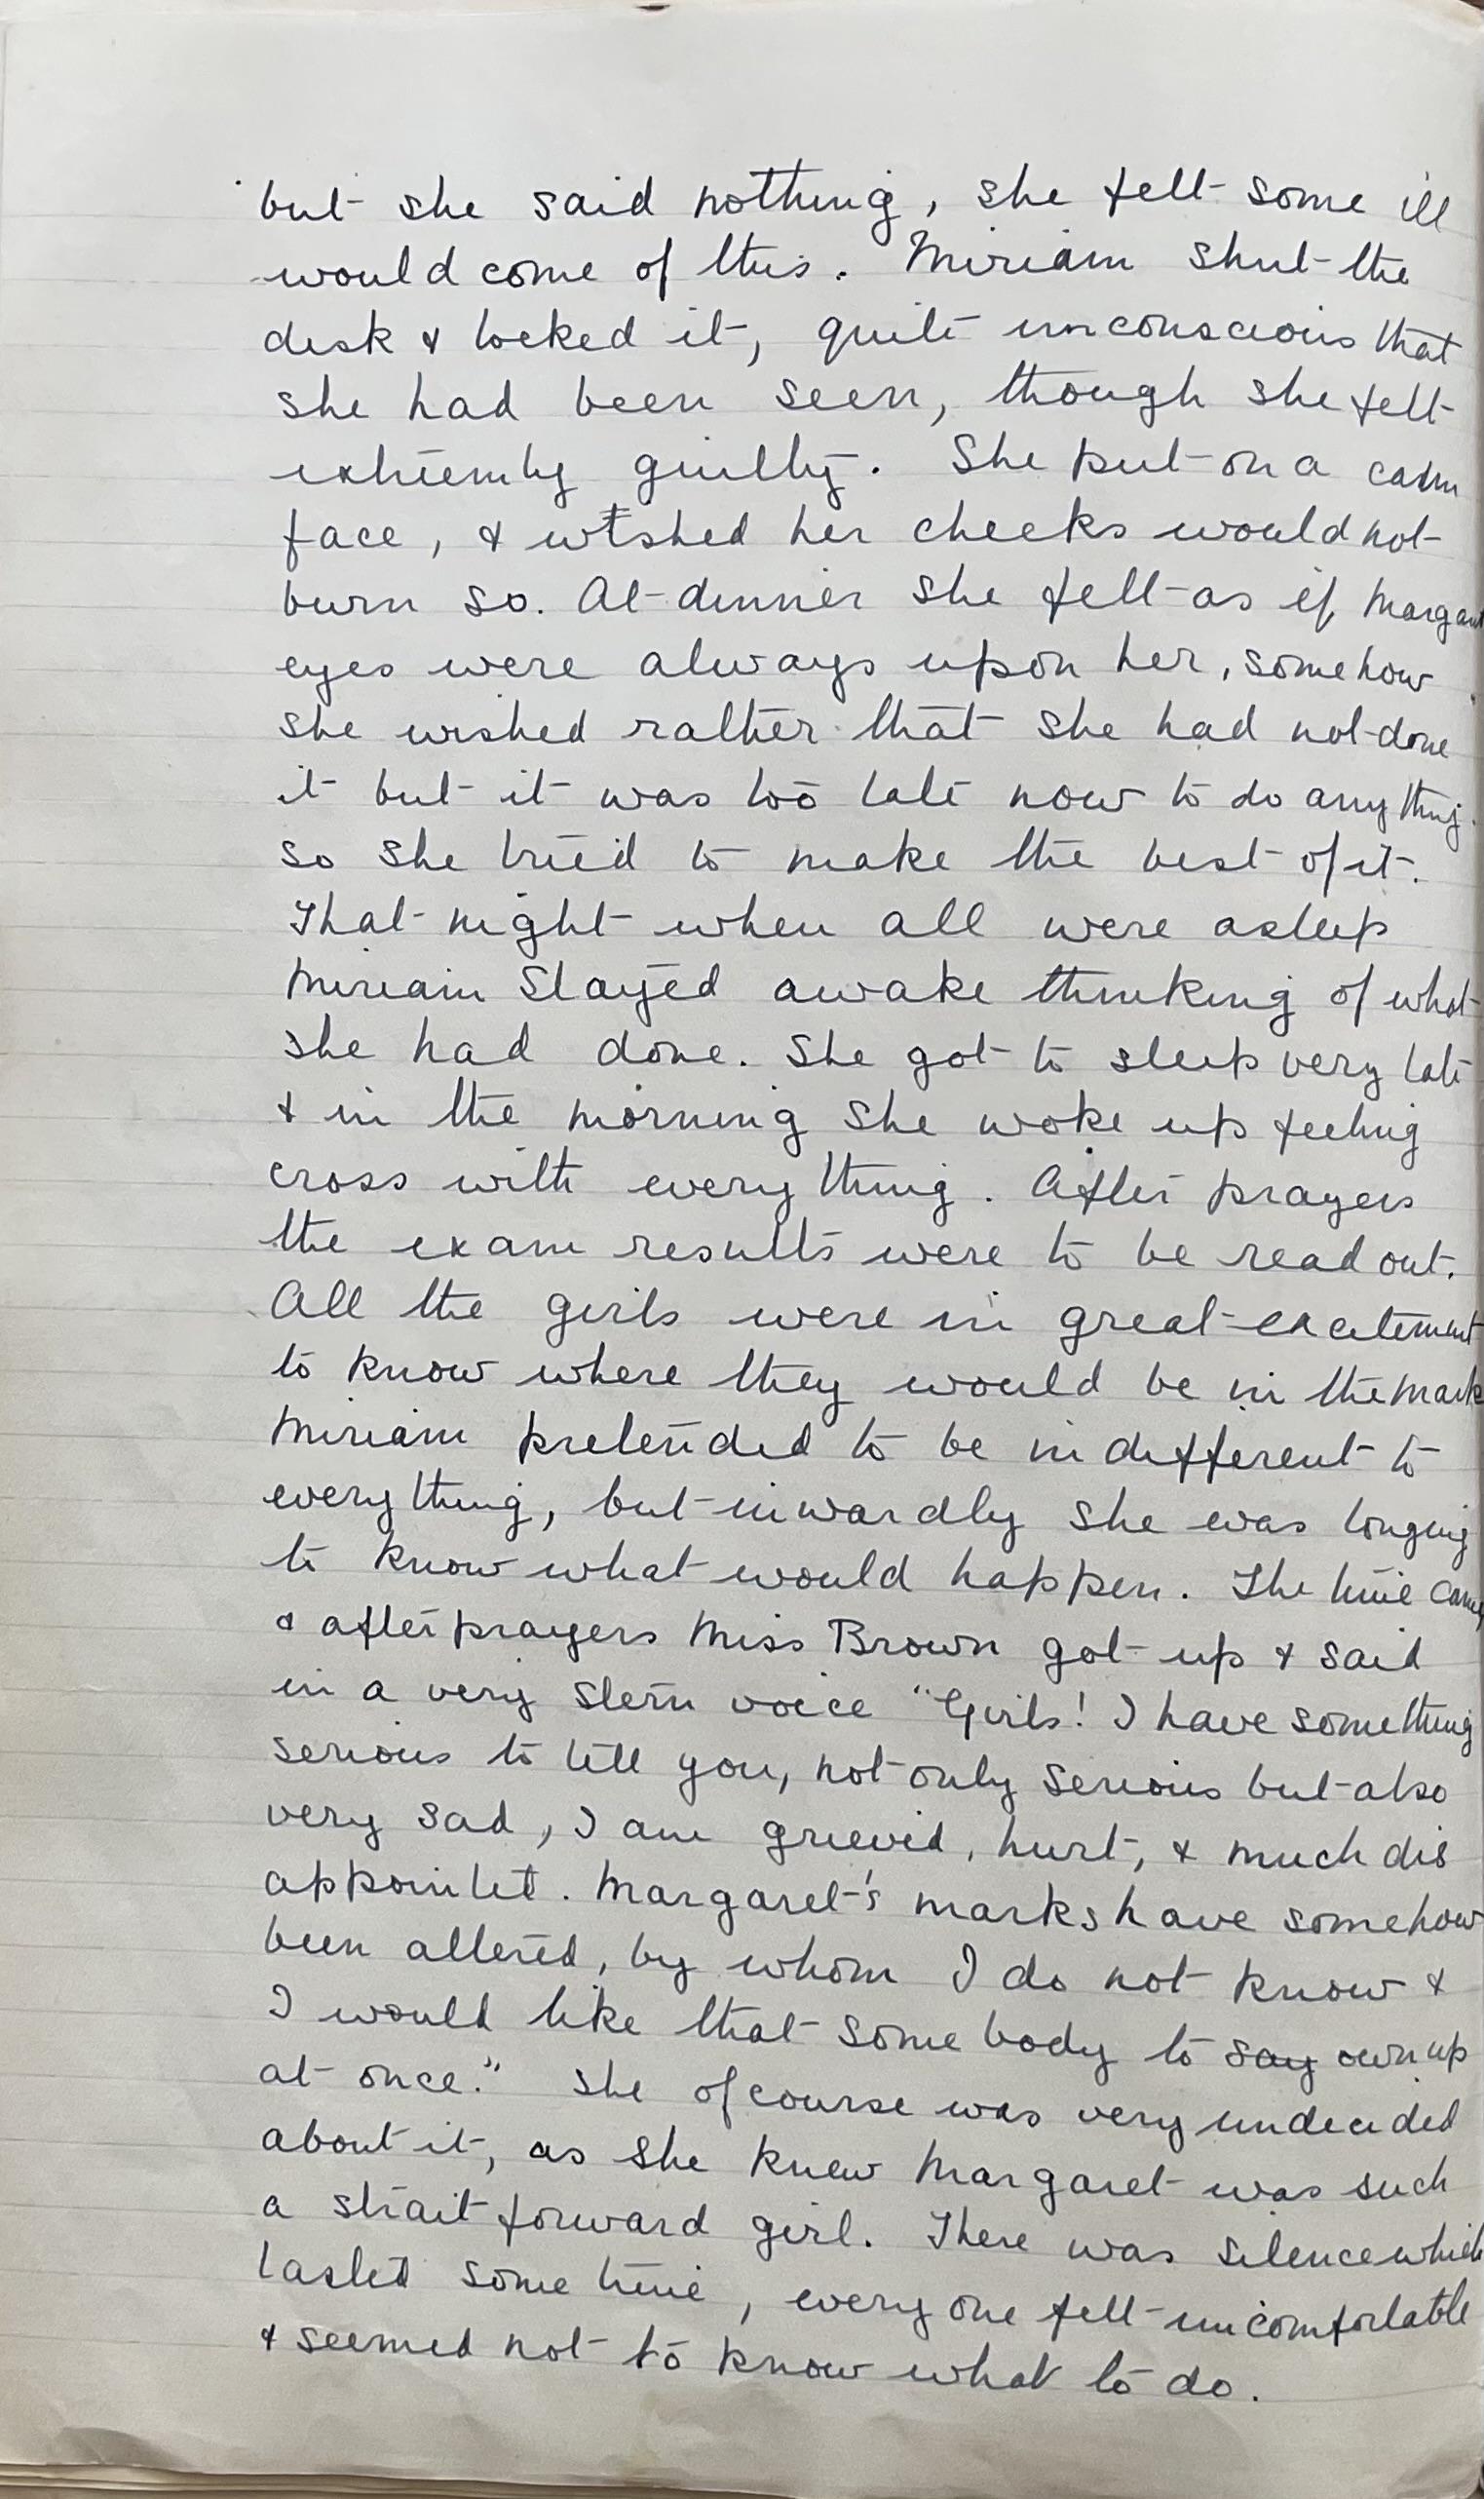 but she said nothing, she felt some ill
would come of this. Miriam shut the
desk & locked it, quite unconscious that
she had been seen, though she felt
extremly guilty. She put on a calm
face, & wished her cheeks would not
burn so. At dinner she felt as if Margaret
eyes were always upon her, somehow
she wished rather that she had not done
it but it was too late now to do anything.
so she tried to make the best of it.
That night when all were asleep
Miriam stayed awake thinking of what
she had done. She got to sleep very late
& in the morning she woke up feeling
cross with every thing. After prayers
the exam results were to be read out.
All the girls were in great excitement
to know where they would be in the mark
Miriam pretended to be indifferent to
every thing, but inwardly she was longing
to know what would happen. The time came,
& after prayers Miss Brown got up & said
in a very stern voice "Girls! I have something
serious to tell you, not only serious but also
very sad, I am grieved, hurt, & much dis
appointet. Margaret's marks have somehow
been altered, by whom I do not know &
I would like that some body to say own up
at once." She of course was very undecided
about it, as she knew Margaret was such
a strait forward girl. There was silence which
lasted some time, every one felt uncomfortable
& seemed not to know what to do.